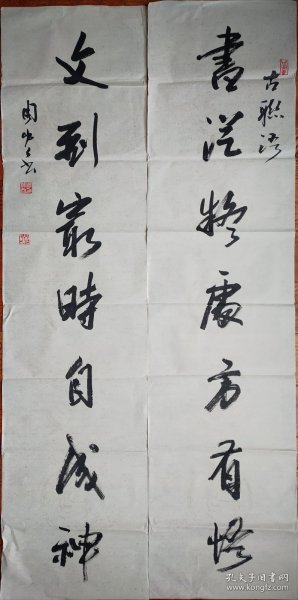 古联语
書從疑處方有悟
文到窮時自成神
孔夫子旧书网